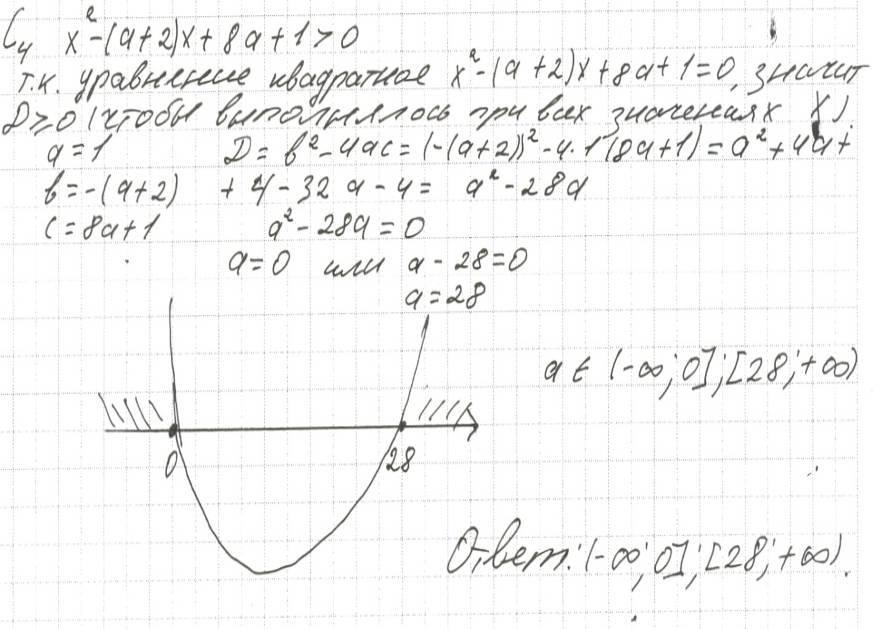 С₄ x² - (a+2)x + 8a + 1 > 0
т.к. уравнение квадратное x² - (a+2)x + 8a + 1 = 0, значит
D ≥ 0 (чтобы выполнялось при всех значениях x).
a = 1 D = b² - 4ac = (-(a+2))² - 4·1·(8a+1) = a² + 4a +
b = -(a+2) + 4 - 32a - 4 = a² - 28a
c = 8a + 1 a² - 28a = 0
a = 0 или a - 28 = 0
a = 28
a ∈ (-∞; 0]; [28; +∞)
0 28
Ответ: (-∞; 0]; [28; +∞).